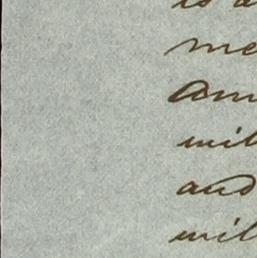 is a
me
Am
wil
and
wil